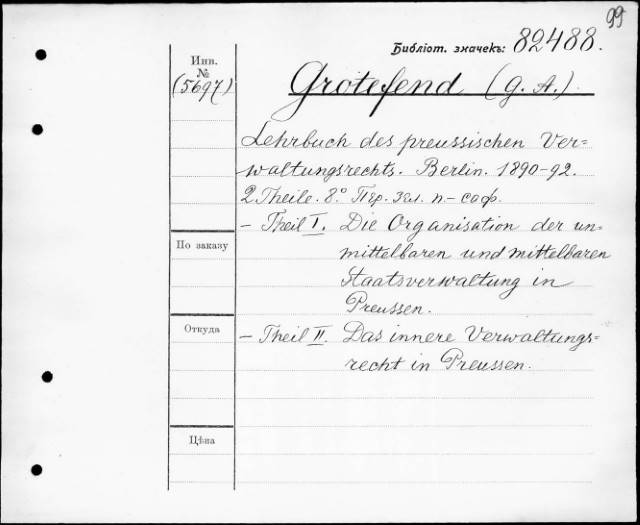 99
Библіот. значекъ: 82488.
Инв.
№
(5697)
Grotefend (G. A.)
Lehrbuch des preussischen Ver=
waltungsrechts. Berlin. 1890-92.
2 Theile. 8° Пер. зел. п.-саф.
- Theil I. Die Organisation der un=
mittelbaren und mittelbaren
Staatsverwaltung in
Preussen.
По заказу
Откуда
- Theil II. Das innere Verwaltungs=
recht in Preussen.
Цѣна